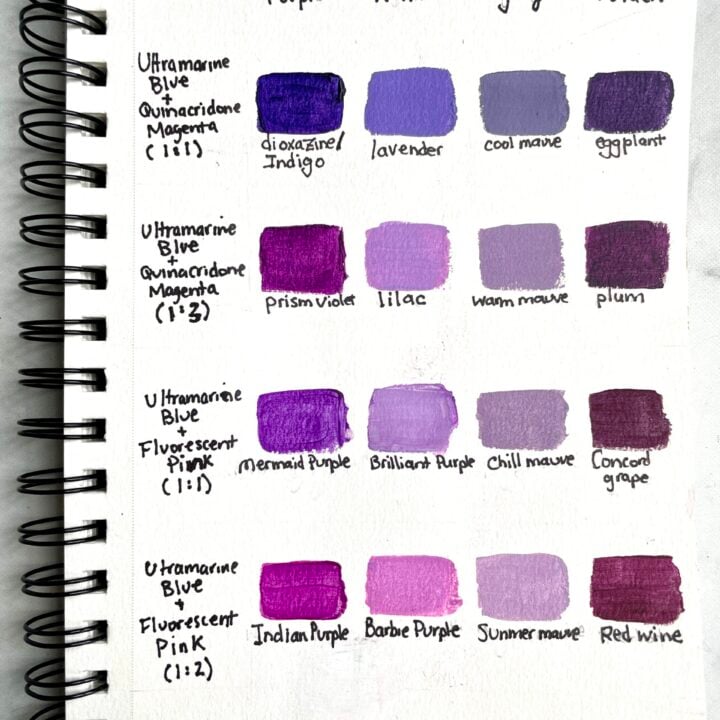 Ultramarine
Blue
+
Quinacridone
Magenta
(1:1)
dioxazine/
Indigo
lavender
cool mauve
eggplant
Ultramarine
Blue
+
Quinacridone
Magenta
(1:3)
prism violet
lilac
warm mauve
plum
Ultramarine
Blue
+
Fluorescent
Pink
(1:1)
Mermaid Purple
Brilliant Purple
Chill mauve
Concord
grape
Utramarine
Blue
+
Fluorescent
Pink
(1:2)
Indian Purple
Barbie Purple
Summer mauve
Red wine